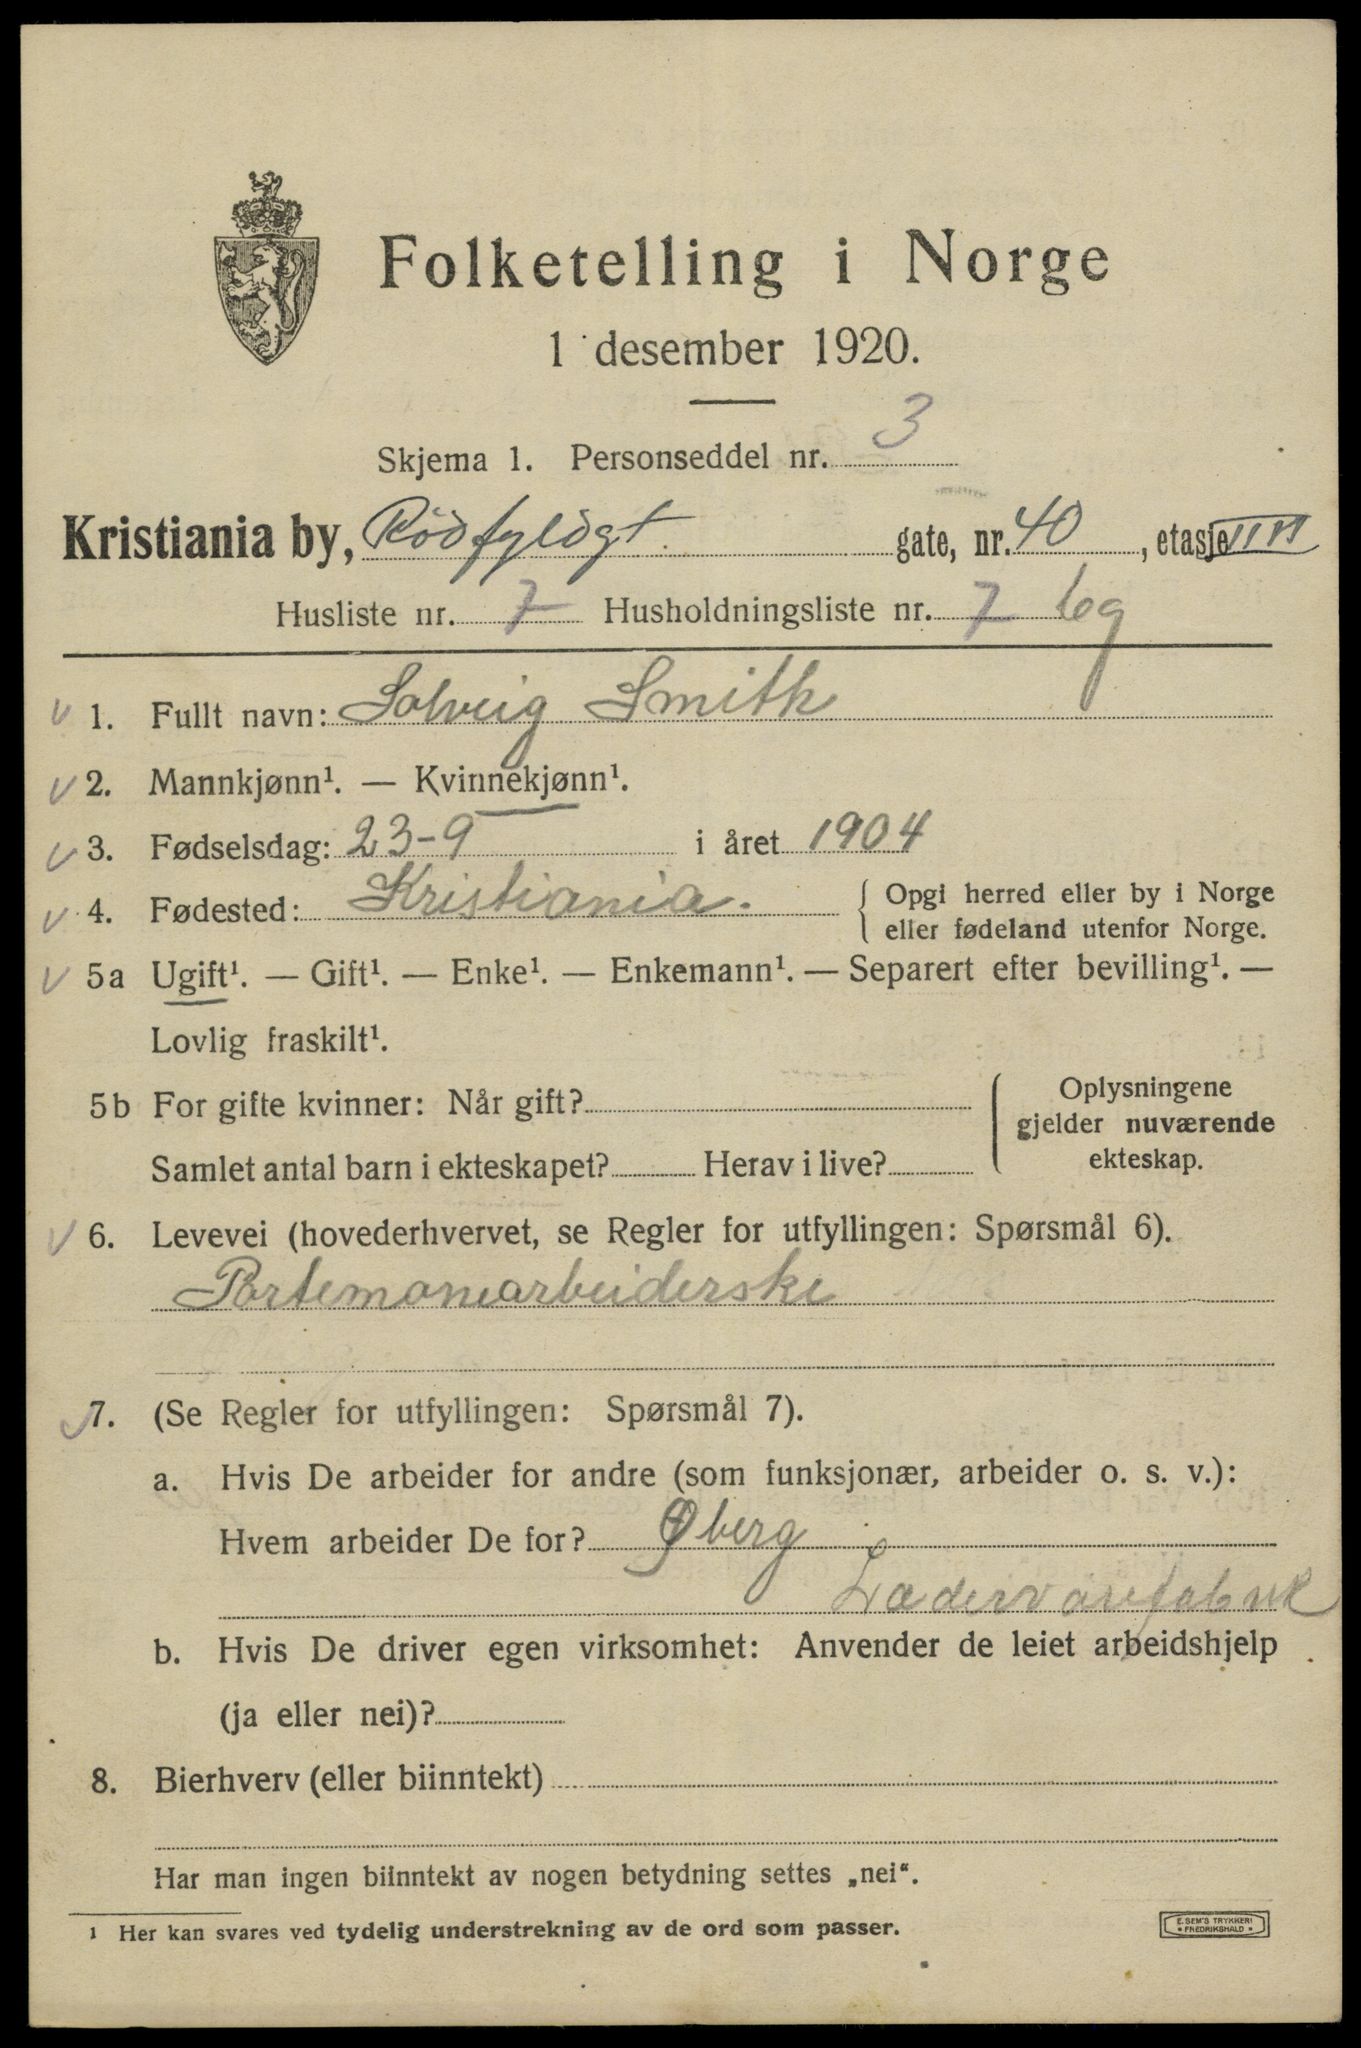 Folketelling i Norge
1 desember 1920.
Skjema 1. Personseddel nr. 3
Kristiania by, Rödfyldgt gate, nr. 40, etasje
Husliste nr. 7 Husholdningsliste nr. 7 leg
1. Fullt navn: Solveig Smith
2. Mannkjønn¹. — Kvinnekjønn¹.
3. Fødselsdag: 23-9 i året 1904
4. Fødested: Kristiania. { Opgi herred eller by i Norge
eller fødeland utenfor Norge.
5a Ugift¹. — Gift¹. — Enke¹. — Enkemann¹. — Separert efter bevilling¹. —
Lovlig fraskilt¹.
5b For gifte kvinner: Når gift?
Samlet antal barn i ekteskapet? Herav i live?
Oplysningene
gjelder nuværende
ekteskap.
6. Levevei (hovederhvervet, se Regler for utfyllingen: Spørsmål 6).
Portemonearbeiderske
7. (Se Regler for utfyllingen: Spørsmål 7).
a. Hvis De arbeider for andre (som funksjonær, arbeider o. s. v.):
Hvem arbeider De for? Øberg
Lædervarefabrik
b. Hvis De driver egen virksomhet: Anvender de leiet arbeidshjelp
(ja eller nei)?
8. Bierhverv (eller biinntekt)
Har man ingen biinntekt av nogen betydning settes „nei“.
1 Her kan svares ved tydelig understrekning av de ord som passer.
E. SEM'S TRYKKERI
* FREDRIKSHALD *